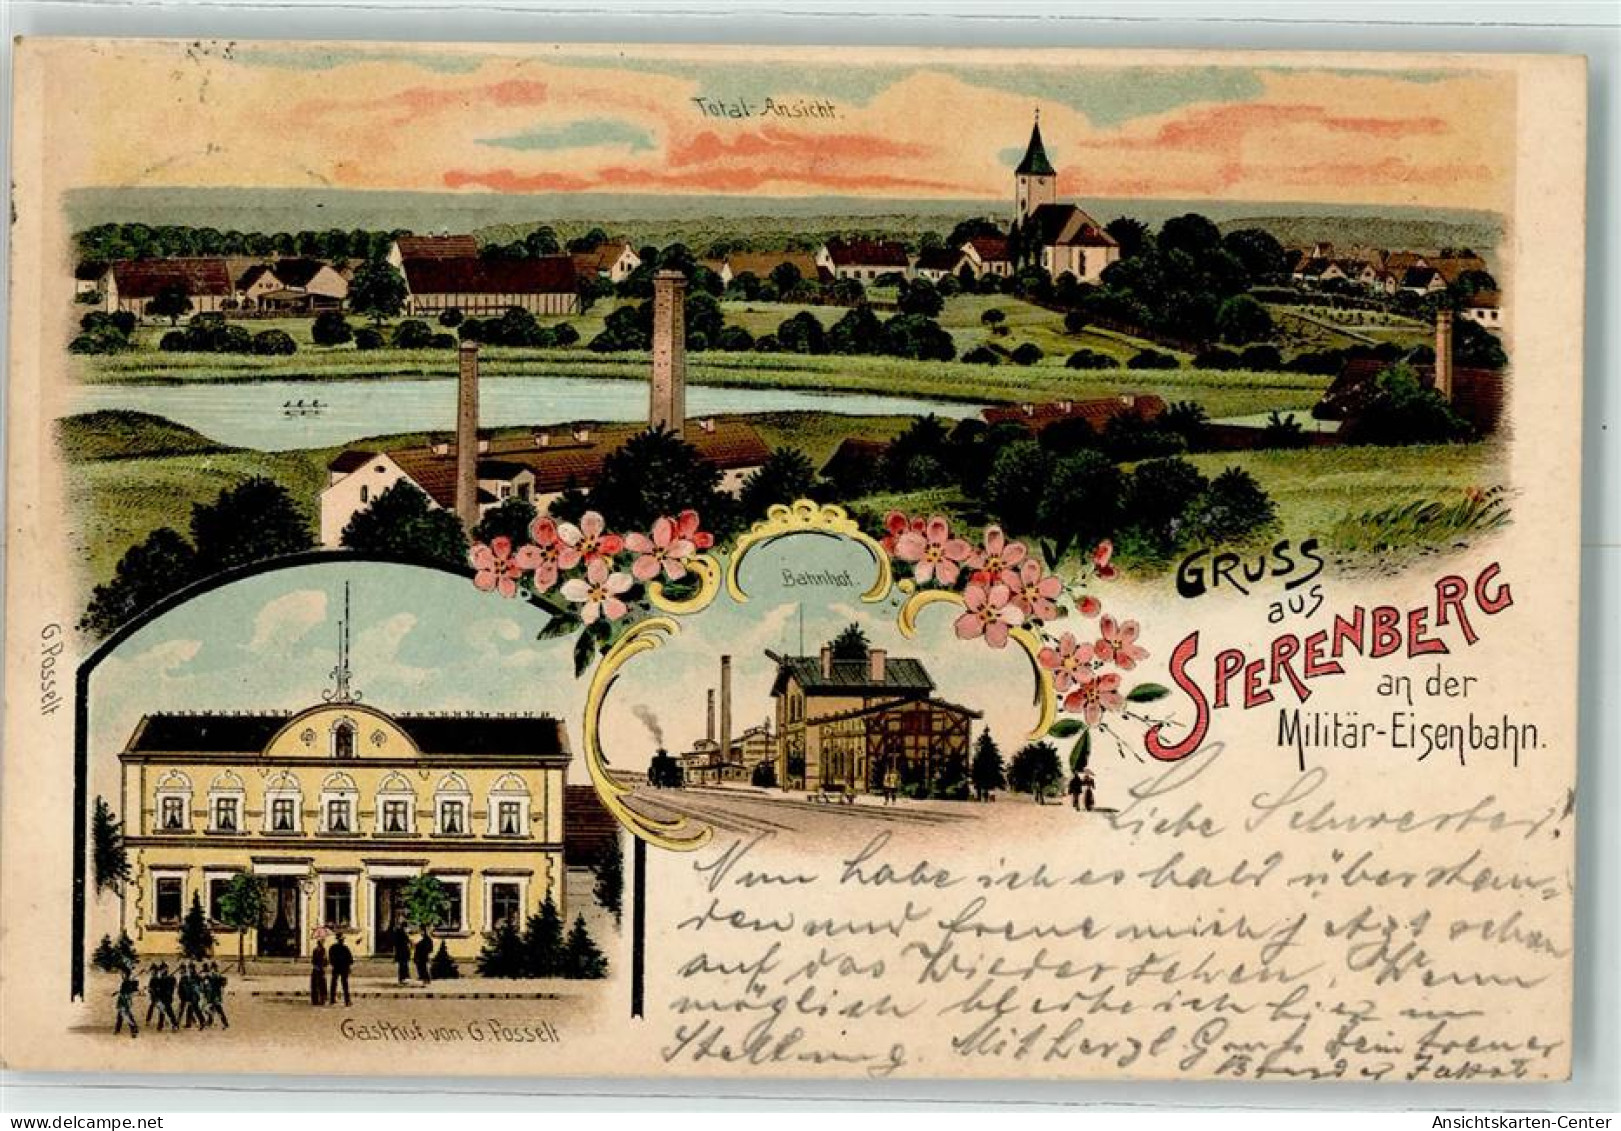 Total-Ansicht.
GRUSS
aus
SPERENBERG
an der
Militär-Eisenbahn.
Bahnhof.
G. Posselt
Gasthof von G. Posselt
Liebe Schwester!
Nun habe ich es bald überstan=
den und freue mich jetzt schon
auf das Wiedersehen. Wenn
möglich bleibe ich hier in
Stellung. Mit herzl. Gruß Dein treuer
Bruder
Ansichtskarten-Center